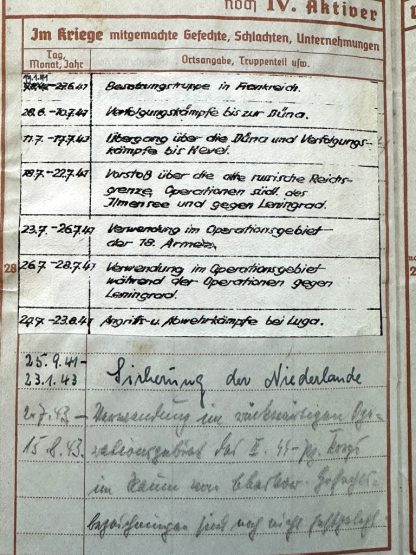 noch IV. Aktiver
Im Kriege mitgemachte Gefechte, Schlachten, Unternehmungen
Tag, Ortsangabe, Truppenteil usw.
Monat, Jahr
19.1.41
-27.6.41 Besatzungstruppe in Frankreich.
28.6.-10.7.41 Verfolgungskämpfe bis zur Düna.
11.7.-17.7.41 Übergang über die Düna und Verfolgungs-
kämpfe bis Nevel.
18.7.-22.7.41 Vorstoß über die alte russische Reichs-
grenze, Operationen südl. des
Ilmensee und gegen Leningrad.
23.7.-26.7.41 Verwendung im Operationsgebiet
der 18. Armee.
28 26.7.-28.7.41 Verwendung im Operationsgebiet
während der Operationen gegen
Leningrad.
-23.8.41 Angriffs-u. Abwehrkämpfe bei Luga.
25.9.41-
23.1.43 Sicherung der Niederlande
2.7.43- Verwendung im rückwärtigen Ope-
15.8.43. rationsgebiet des II. SS-Pz. Korps
im Raum von Charkow. Gefechts-
bezeichnungen sind noch nicht festgelegt